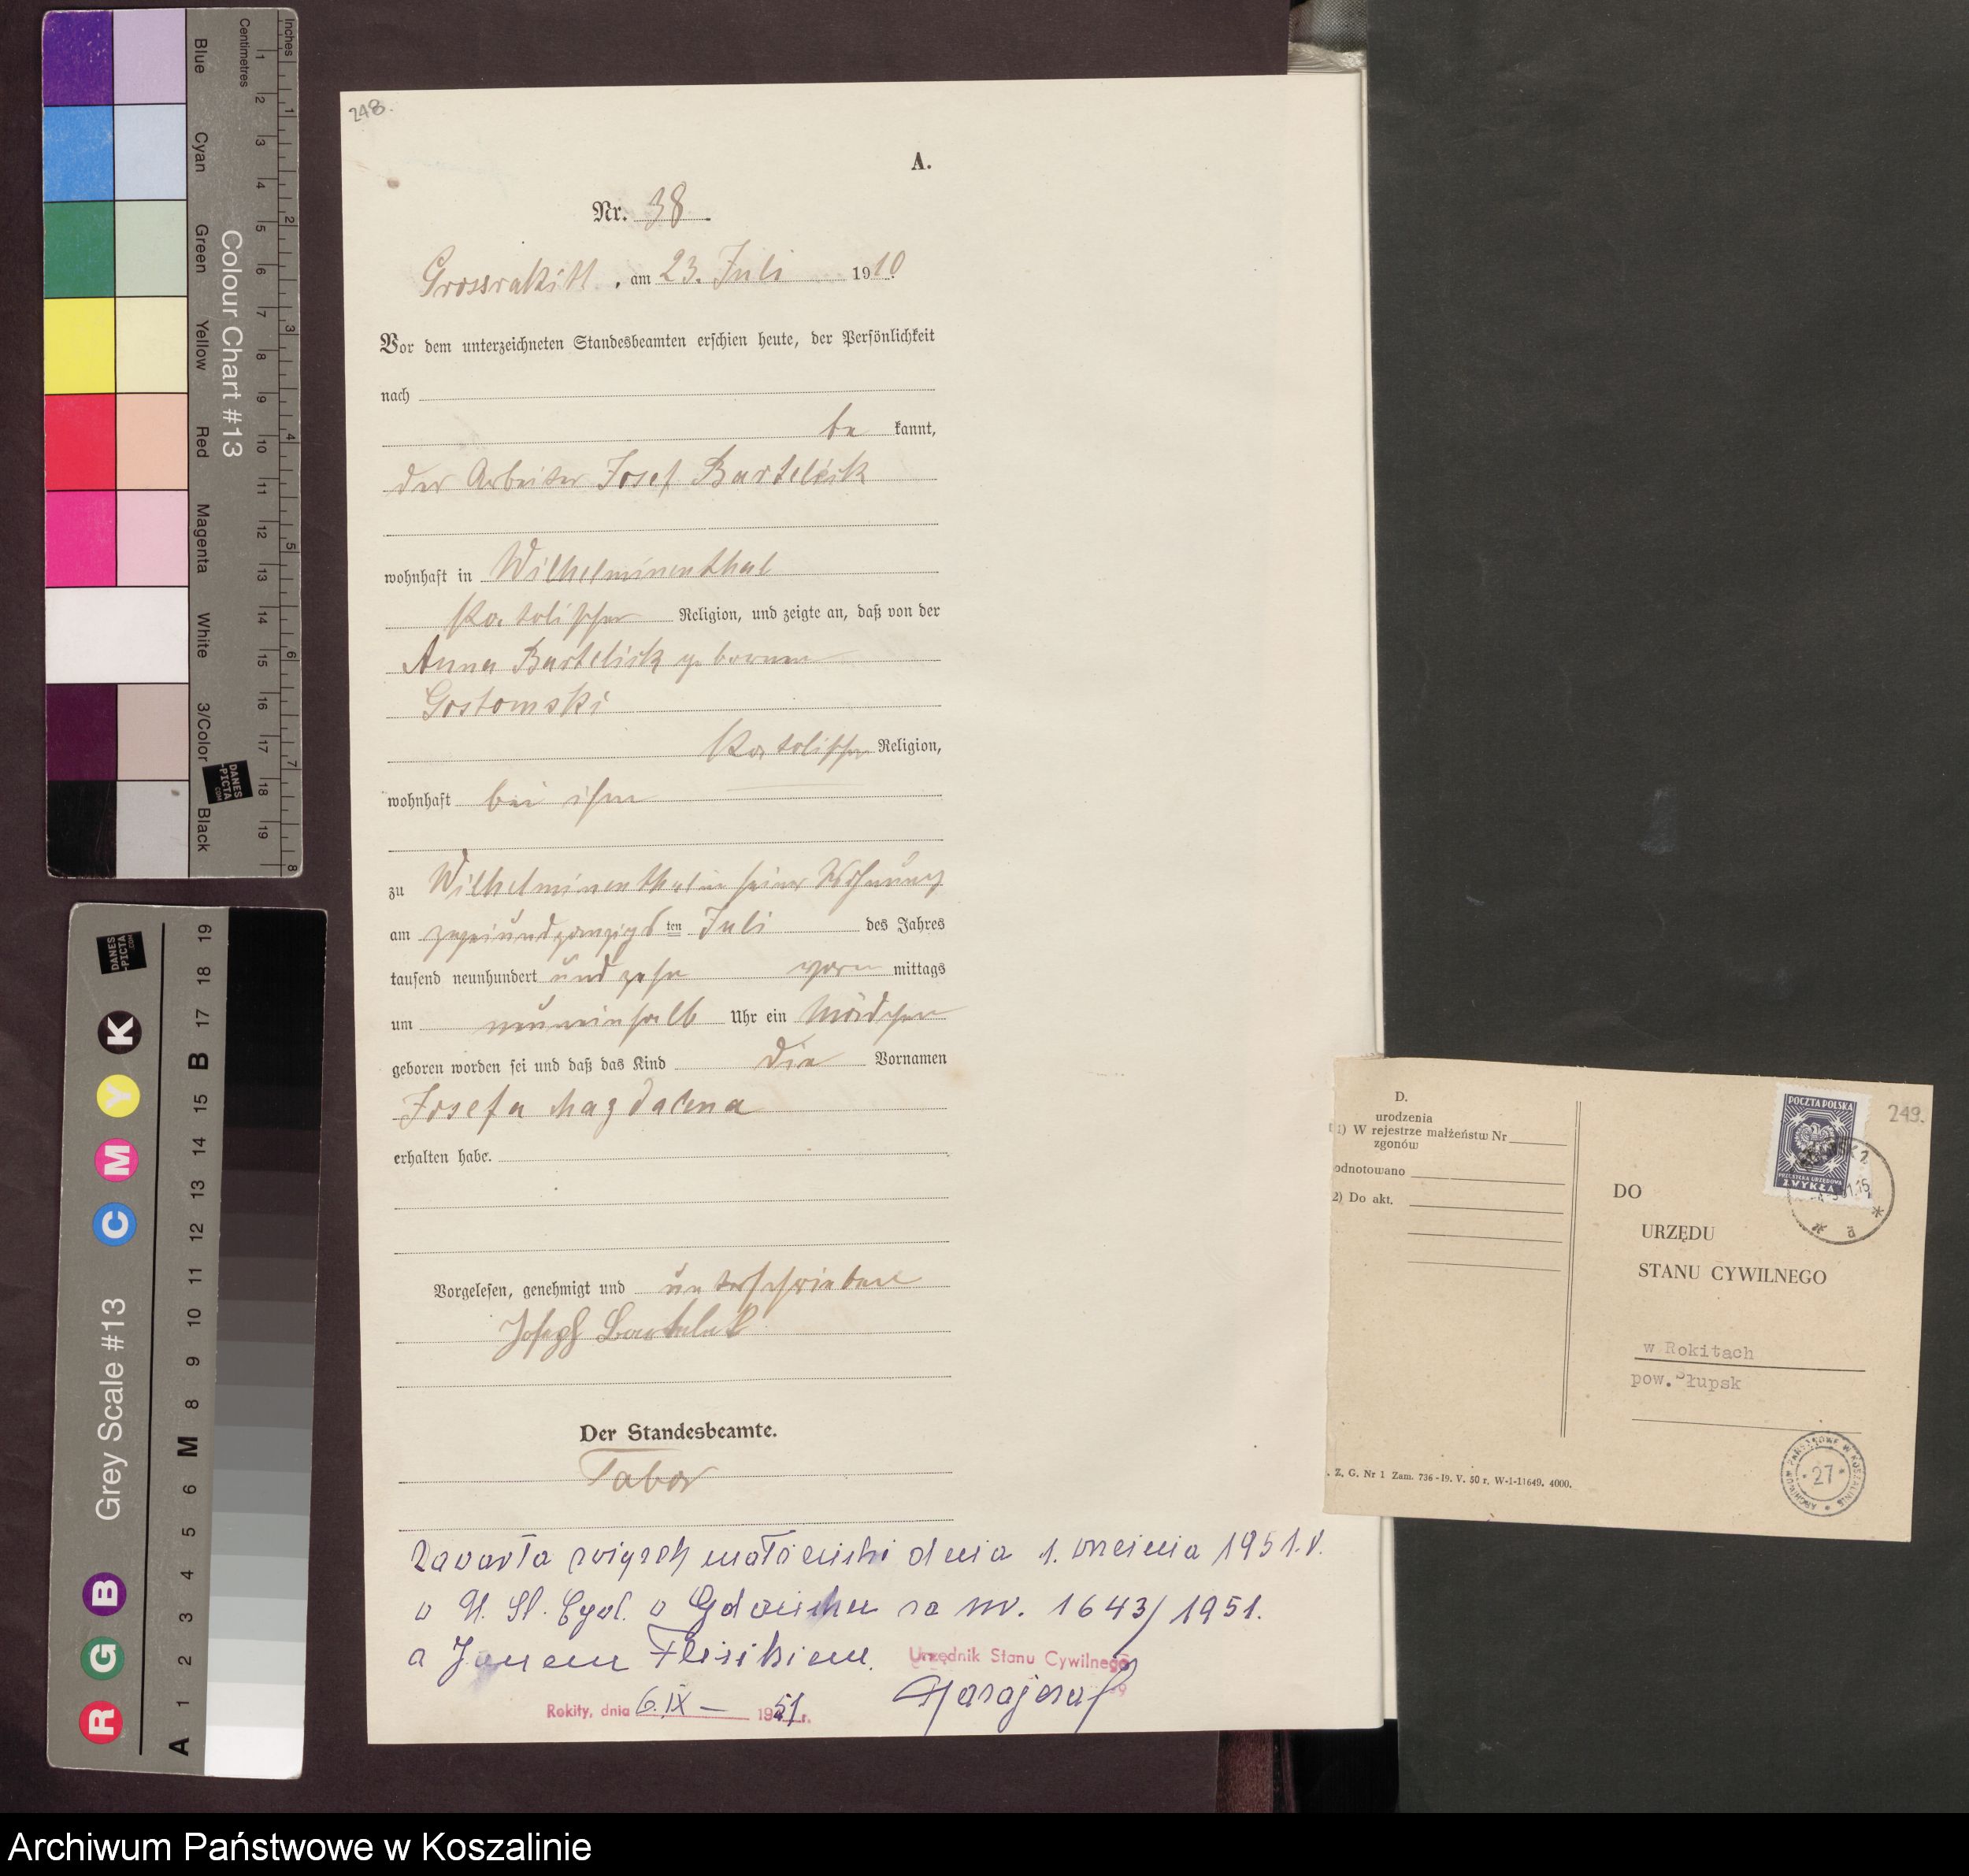 248.
A.
Nr. 38
Grossrakitt, am 23. Juli 1910
Vor dem unterzeichneten Standesbeamten erschien heute, der Persönlichkeit
nach
be kannt,
der Arbeiter Josef Bartelick
wohnhaft in Wilhelminenthal
katolischer Religion, und zeigte an, daß von der
Anna Bartelick geborenen
Gostomski
katolischer Religion,
wohnhaft bei ihm
zu Wilhelminenthal in seiner Wohnung
am zweiundzwanzigsten Juli des Jahres
tausend neunhundert und zehn vor mittags
um neuneinhalb Uhr ein Mädchen
geboren worden sei und daß das Kind die Vornamen
Josefa Magdalena
erhalten habe.
Vorgelesen, genehmigt und unterschrieben
Joseph
Der Standesbeamte.
Tabor
Zawarła związek małżeński dnia 1. września 1951.r.
w U. St. Cywil. w Gdańsku za nr. 1643/1951.
z Janem
Urzędnik Stanu Cywilnego
Rokity, dnia 6.IX – 1951 r.
D.
urodzenia
1) W rejestrze małżeństw Nr
zgonów
odnotowano
2) Do akt.
Z. G. Nr 1 Zam. 736-19. V. 50 r. W-1-11649. 4000.
249.
POCZTA POLSKA
PRZESYŁKA URZĘDOWA
ZWYKŁA
DO
URZĘDU
STANU CYWILNEGO
w Rokitach
pow. Słupsk
ARCHIWUM PAŃSTWOWE W KOSZALINIE
27
Inches
Centimetres
Colour Chart #13
Blue
Cyan
Green
Yellow
Red
Magenta
White
3/Color
Black
1 2 3 4 5 6 7 8 9 10 11 12 13 14 15 16 17 18 19
1 2 3 4 5 6 7 8
DANES
-PICTA
.COM
Grey Scale #13
R G B C M Y K
A 1 2 3 4 5 6 M 8 9 10 11 12 13 14 15 B 17 18 19
DANES
-PICTA
.COM
Archiwum Państwowe w Koszalinie